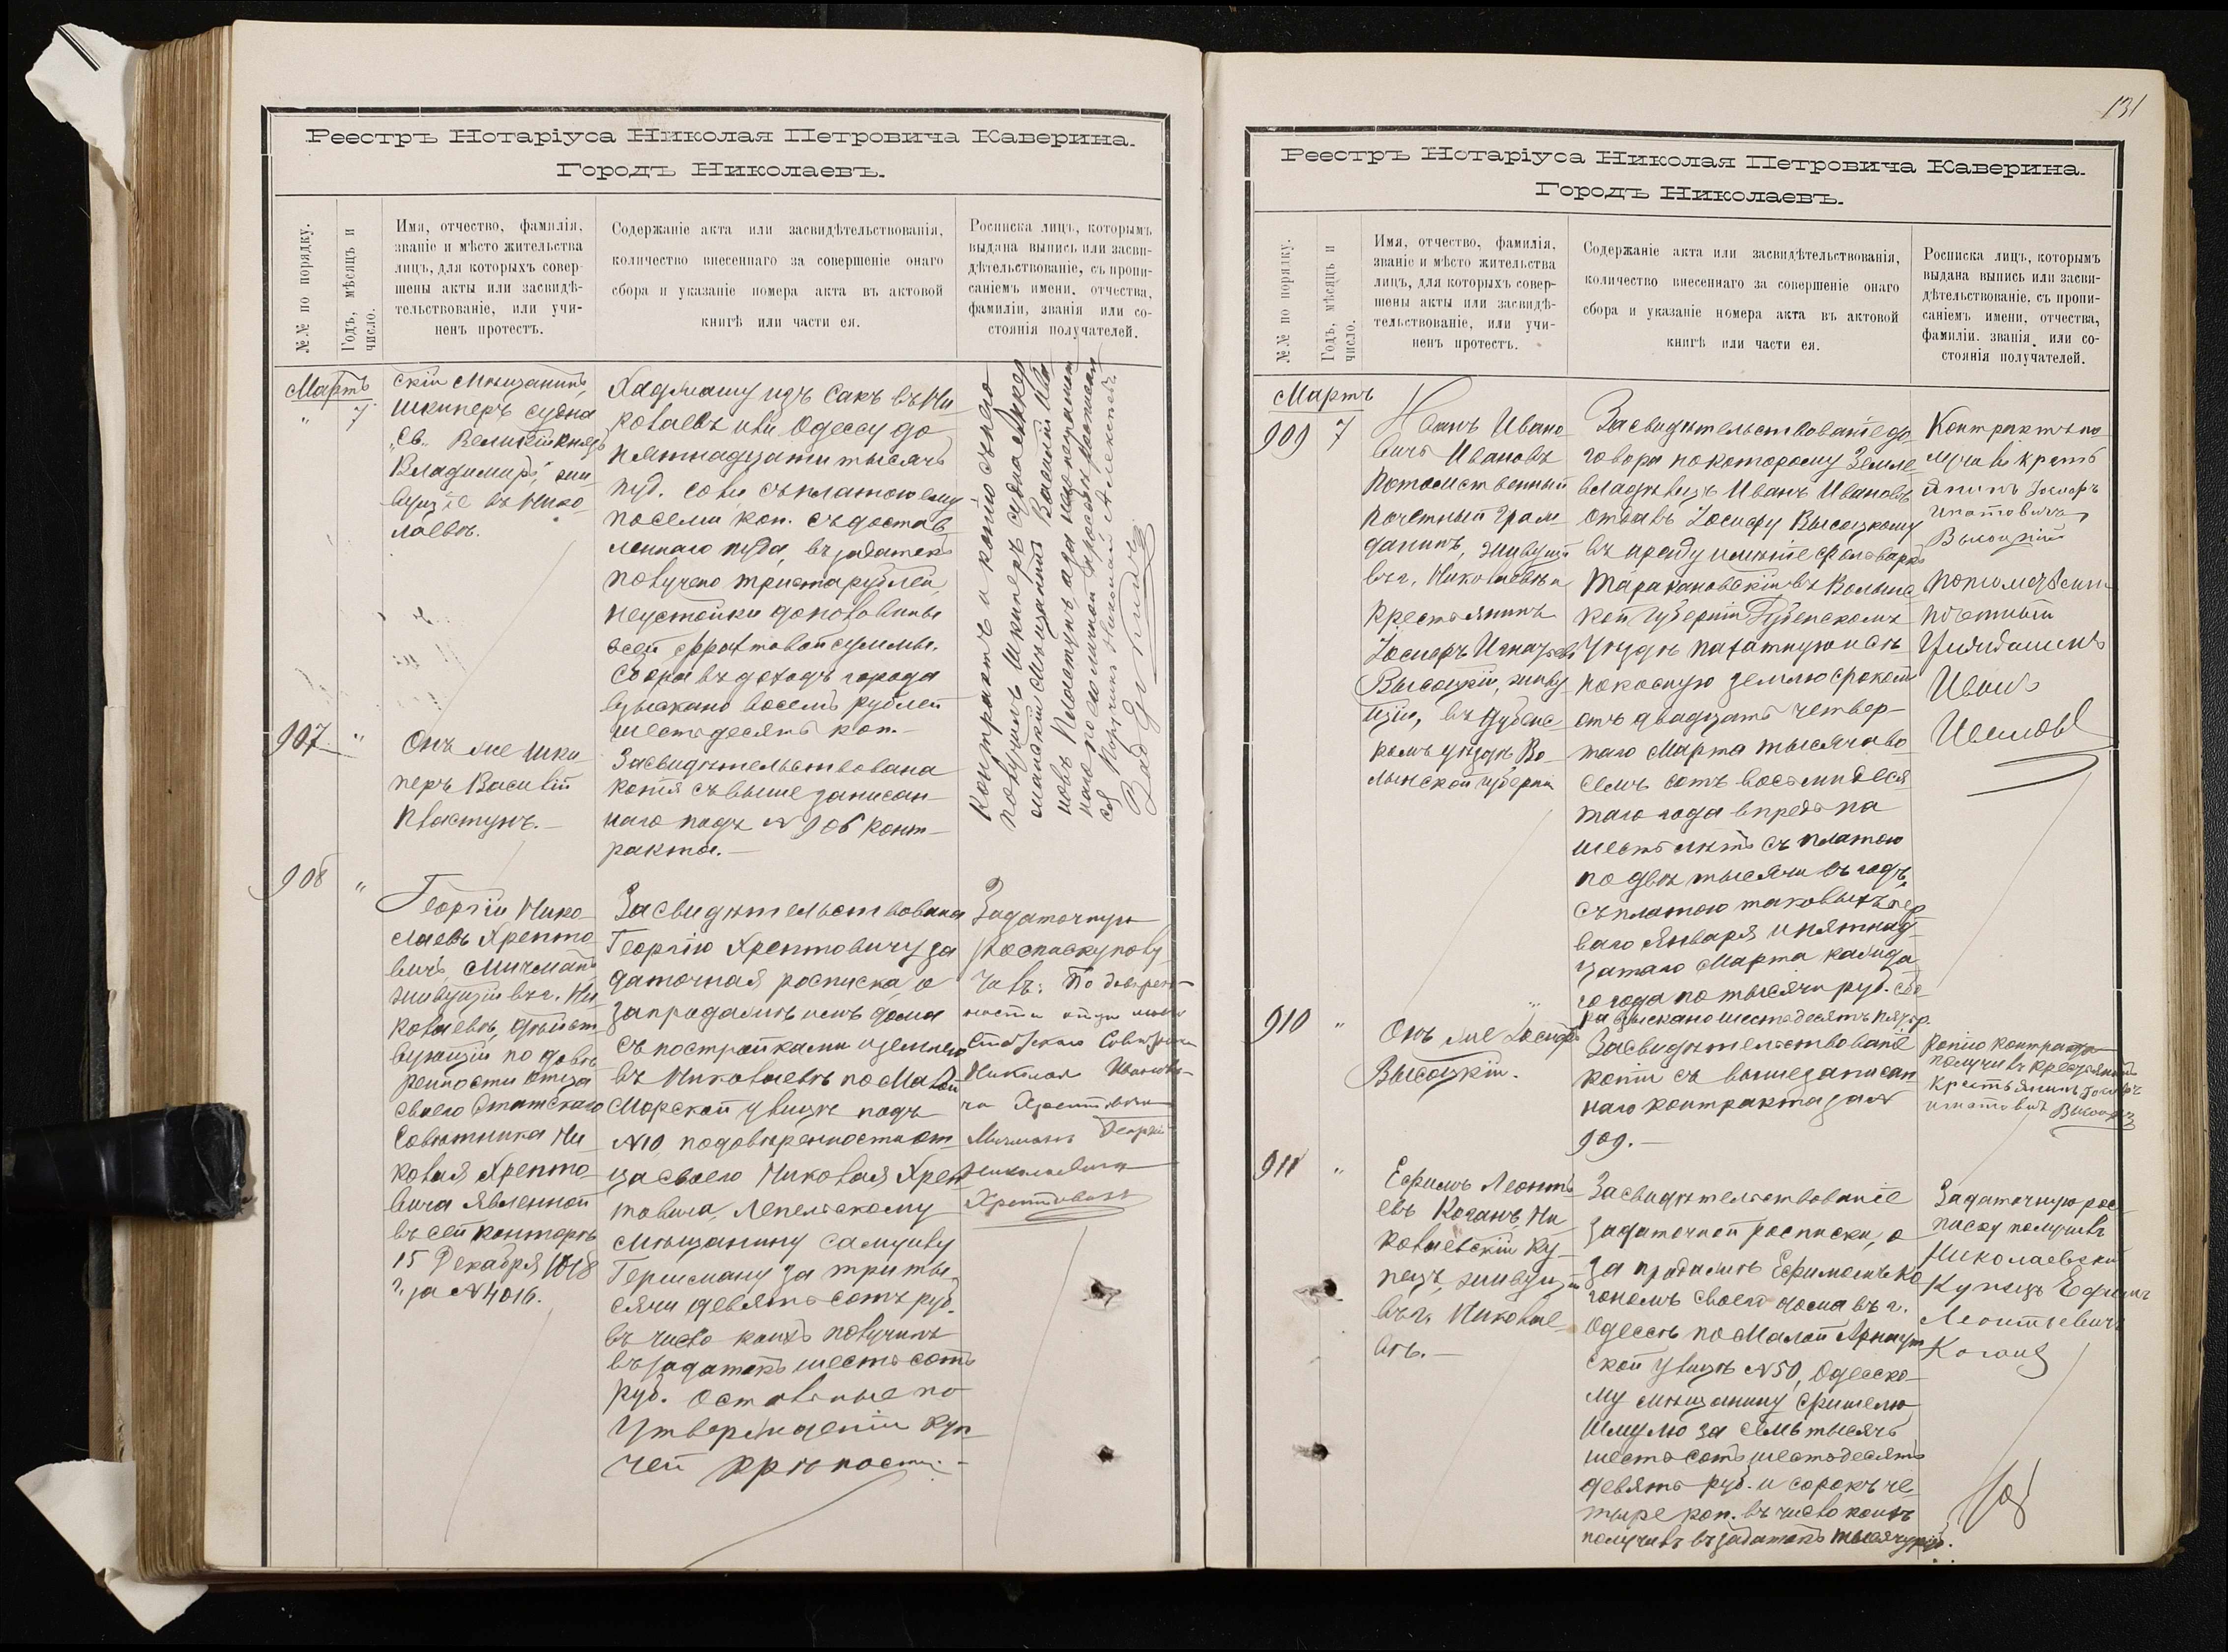 Реестръ Нотаріуса Николая Петровича Каверина.
Городъ Николаевъ.
№№ по порядку.
Годъ, мѣсяцъ и
число.
Имя, отчество, фамилія,
званіе и мѣсто жительства
лицъ, для которыхъ совер-
шены акты или засвидѣ-
тельствованіе, или учи-
ненъ протестъ.
Содержаніе акта или засвидѣтельствованія,
количество внесеннаго за совершеніе онаго
сбора и указаніе номера акта въ актовой
книгѣ или части ея.
Росписка лицъ, которымъ
выдана выпись или засви-
дѣтельствованіе, съ пропи-
саніемъ имени, отчества,
фамиліи, званія или со-
стоянія получателей.
Мартъ
" 7
скій мѣщанинъ,
шкиперъ судна
„Св. Великій Князь
Владимиръ", жи
вущіе въ Нико
лаевѣ.
изъ Сакъ въ Ни
колаевъ или Одессу до
пятнадцати тысячъ
пуд. соли съ платою ему
по семи коп. съ достав
леннаго пуда, въ задатокъ
получено триста рублей,
неустойки до половины
всей фрахтовой суммы.
Сбора въ доходъ города
взыскано восемь рублей
шестьдесятъ коп.
Контрактъ и копію съ него
получилъ Шкиперъ судна
мѣщанинъ Василій
Пластунъ, а за него неграмот
наго по его личной просьбѣ росписал
ся Николай Алексеевъ
907 "
Онъ же шки
перъ Василій
Пластунъ.—
Засвидѣтельствована
копія съ выше записан-
наго подъ № 906 конт-
ракта.—
908 "
Георгій Нико
лаевъ Хрепто
вичъ, Мичманъ
живущій въ г. Ни
колаевѣ, дѣйст
вующій по довѣ
ренности отца
своего Статскаго
Совѣтника Ни
колая Хрепто
вича явленной
въ сей конторѣ
15 Декабря 1878
г. за № 4016.
Засвидѣтельствована
Георгію Хрептовичу за
даточная росписка, о
запродажѣ имъ дома
съ постройками и землею
въ Николаевѣ по Малой
Морской улицѣ подъ
№ 10, по довѣренности от
ца своего Николая Хреп
товича, Лепельскому
мѣщанину Самуилу
Гершману за три ты
сячи девятьсотъ руб.
въ число коихъ получилъ
въ задатокъ шестьсотъ
руб. остальные по
утвержденіи куп
чей крѣпости.—
Задаточную
росписку полу
чилъ: По доверен-
ности отца моего
Статскаго Советника
Николая Иванови-
ча Хрептовича
Мичманъ Георгій
Николаевичъ
Хрептовичъ
131
Реестръ Нотаріуса Николая Петровича Каверина.
Городъ Николаевъ.
№№ по порядку.
Годъ, мѣсяцъ и
число.
Имя, отчество, фамилія,
званіе и мѣсто жительства
лицъ, для которыхъ совер-
шены акты или засвидѣ-
тельствованіе, или учи-
ненъ протестъ.
Содержаніе акта или засвидѣтельствованія,
количество внесеннаго за совершеніе онаго
сбора и указаніе номера акта въ актовой
книгѣ или части ея.
Росписка лицъ, которымъ
выдана выпись или засви-
дѣтельствованіе, съ пропи-
саніемъ имени, отчества,
фамиліи, званія, или со-
стоянія получателей.
Мартъ
909 7
Иванъ Ивано
вичъ Ивановъ
потомственный
почетный граж
данинъ, живущій
въ г. Николаевѣ и
крестьянинъ
Іосифъ Игнатьевъ
Высоцкій, живу
щій, въ Дубенс
комъ уѣздѣ Во
лынской губерніи
Засвидѣтельствованіе до
говора по которому Земле
владѣлецъ Иванъ Ивановъ
отдавъ Іосифу Высоцкому
въ аренду имѣніе фольварк
Таракановскій въ Волынс
кой Губерніи Дубенскомъ
уѣздѣ пахатную и сѣ
нокосную землю срокомъ
отъ двадцать четвер-
таго Марта тысяча во
семь сотъ восьмидеся
таго года впредь на
шесть лѣтъ съ платою
по двѣ тысячи въ годъ,
съ платою таковыхъ пер
ваго Января и пятнад
цатаго Марта каждa
го года по тысячи руб. сбо
ра взыскано шестьдесятъ пять р.
Контрактъ по
лучилъ крест
янинъ Іосифъ
Игнатовичъ
Высоцкій
потомствен
почетный
Гражданинъ
Иванъ
Ивановъ
910 "
Онъ же Іосифъ
Высоцкій.
Засвидѣтельствованіе
копіи съ вышезаписан
наго контракта за №
909.—
Копію контракта
получилъ
крестьянинъ Іосифъ
Игнатовичъ Высоцкій
911 "
Ефимъ Леонть
евъ Коганъ, Ни
колаевскій ку
пецъ, живущій
въ г. Николае
вѣ.—
Засвидѣтельствованіе
задаточной росписки, о
запродажѣ Ефимомъ Ко
ганомъ своего дома въ г.
Одессѣ по Малой Арнаут
ской улицѣ № 50, Одесско
му мѣщанину
Шмулю за семь тысячъ
шестьсотъ шестьдесятъ
девять руб. и сорокъ че
тыре коп. въ число коихъ
получилъ въ задатокъ тысячу руб.
Задаточную рос
писку получилъ
Николаевскій
Купецъ Ефимъ
Леонтьевичъ
Коганъ